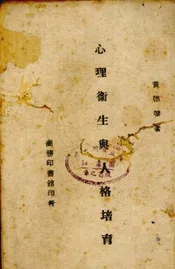 心理衛生與人格培育
商務印書館印行